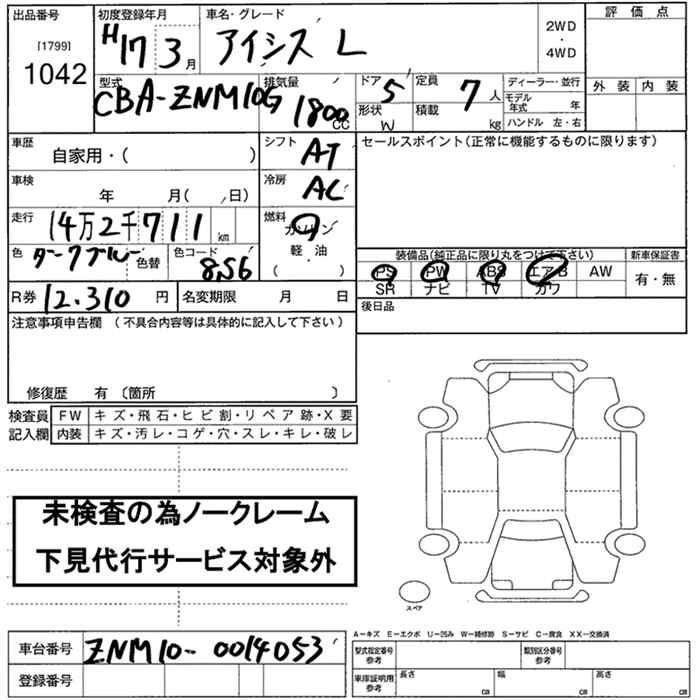 出品番号 初度登録年月 車名・グレード 2WD・4WD 評価点
[1799] 1042 H17 3月 アイシス L
型式 排気量 ドア 5 定員 7人 ディーラー・並行 外装 内装
CBA-ZNM10G 1800cc 形状 W 積載 kg モデル年式 年
ハンドル 左・右
車歴 自家用・( ) シフト AT セールスポイント(正常に機能するものに限ります)
車検 年 月( 日) 冷房 AC
走行 14万2千711km 燃料 ガソリン
軽・油
( )
色 ダークブルー 色替 色コード 8S6 装備品(純正品に限り丸をつけて下さい) 新車保証書
PS PW ABS エアB AW 有・無
SR ナビ TV カワ
R券 12,310円 名変期限 月 日 後日品
注意事項申告欄 (不具合内容等は具体的に記入して下さい)
修復歴 有 〔箇所 〕
検査員 FW キズ・飛石・ヒビ割・リペア跡・X要
記入欄 内装 キズ・汚レ・コゲ・穴・スレ・キレ・破レ
未検査の為ノークレーム
下見代行サービス対象外
スペア
A―キズ E―エクボ U―凹み W―補修跡 S―サビ C―腐食 XX―交換済
車台番号 ZNM10-0014053 型式指定番号 参考 類別区分番号 参考
登録番号 車庫証明用 参考 長さ cm 幅 cm 高さ cm